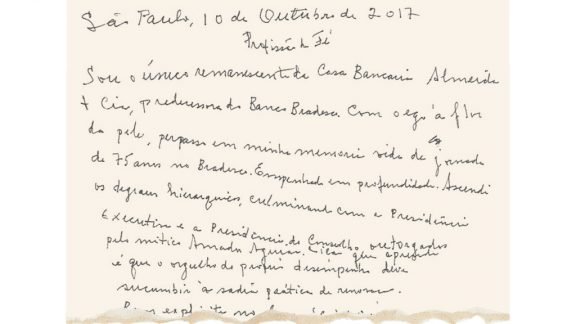 São Paulo, 10 de Outubro de 2017
Profissão de Fé
Sou o único remanescente da Casa Bancaria Almeida
& Cia, predecessora do Banco Bradesco. Com o ego à flor
da pele, perpasso em minha memoria vida de jornada
de 75 anos no Bradesco. Empenhado em profundidade. Ascendi
os degraus hierarquicos, culminando com a Presidência
Executiva e a Presidência do Conselho, outorgados
pelo mitico Amador Aguiar. que aprendi
é que o orgulho do proprio desempenho deve
sucumbir à sadia prática de renovar.
explicito no